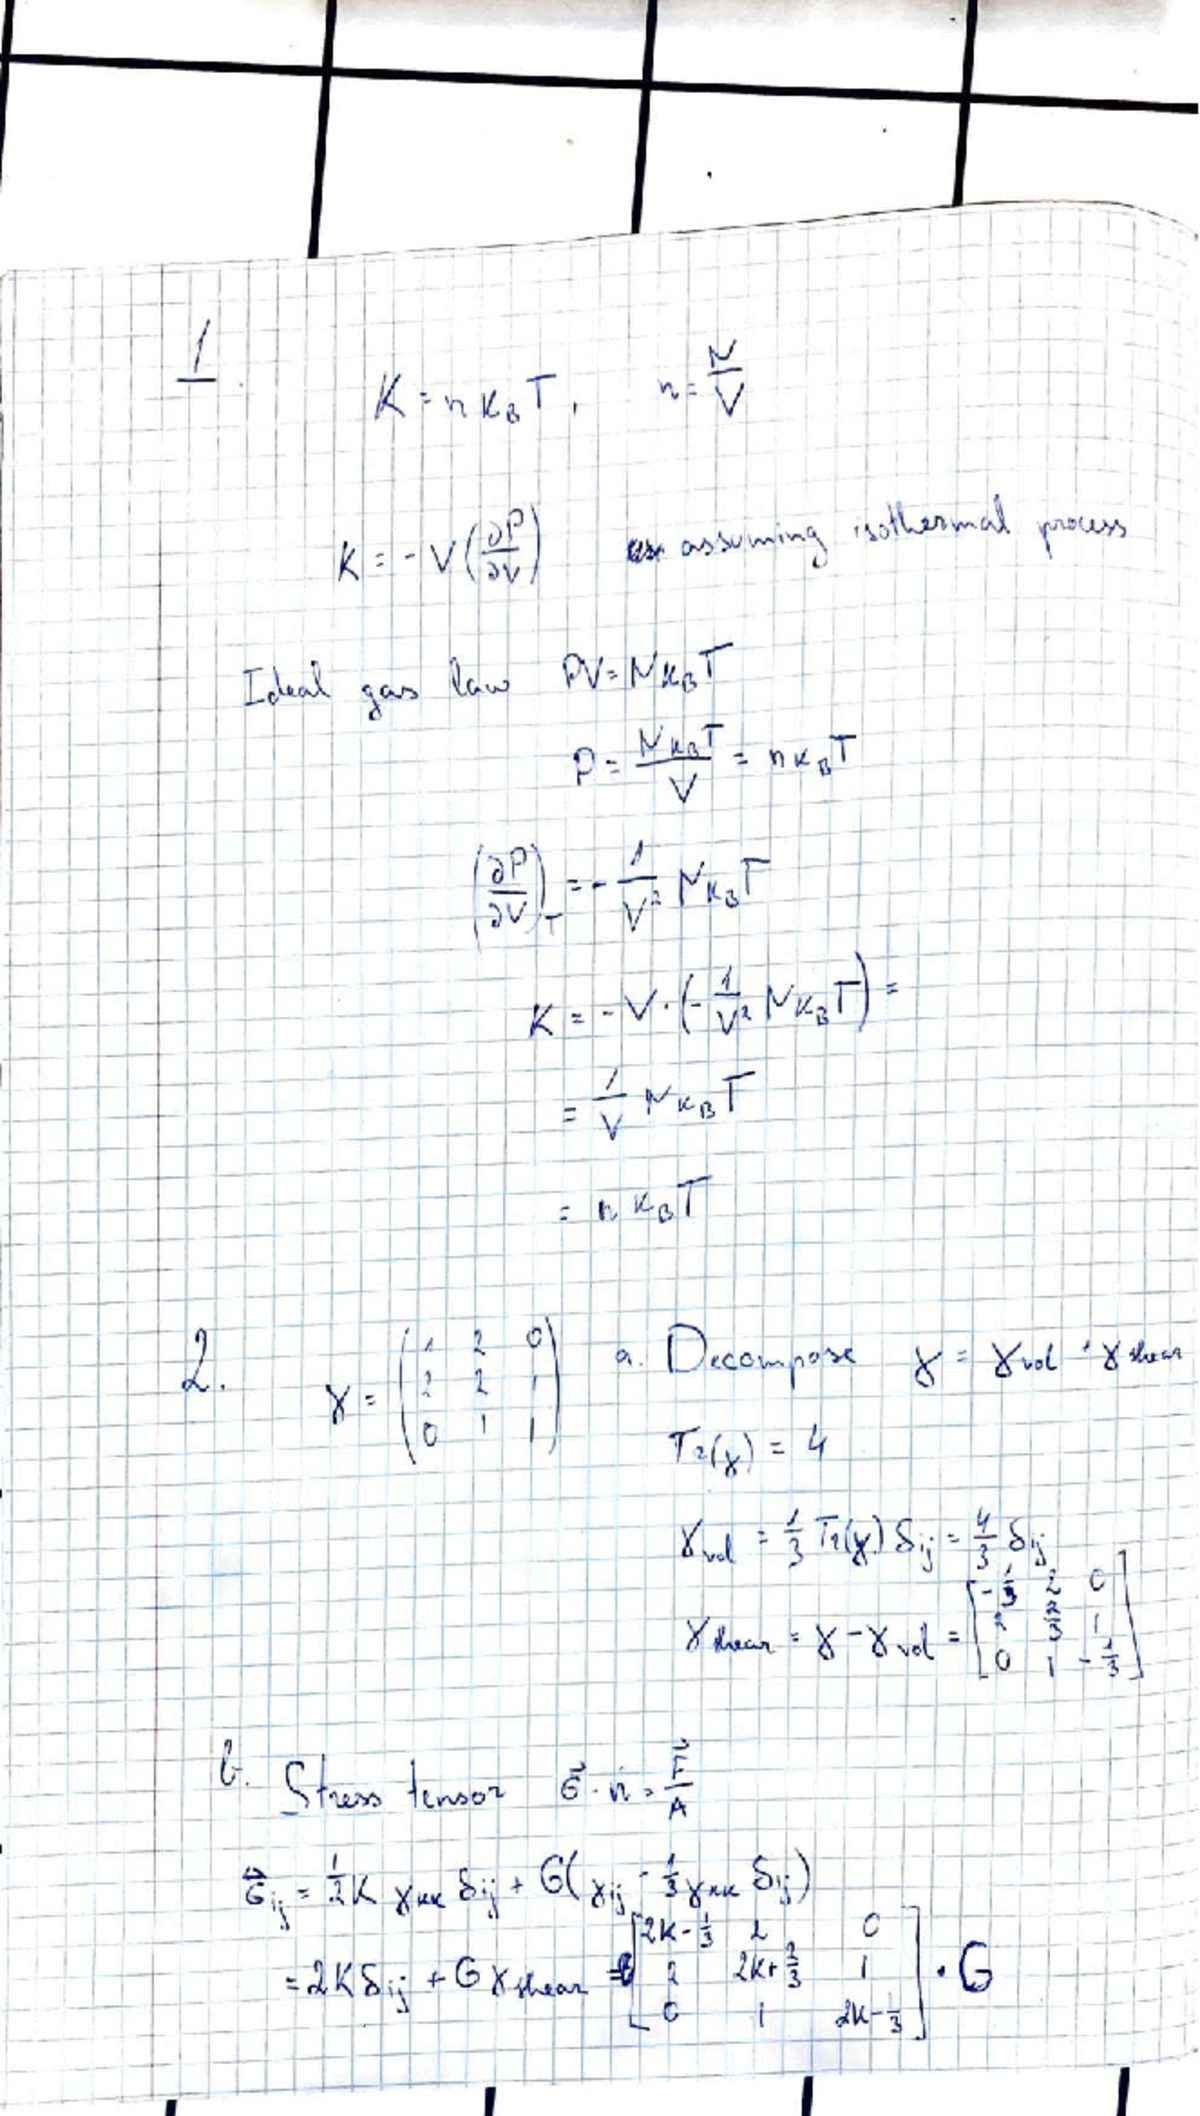 1.
K = n κ_B T, n = N/V
K = -V (∂P/∂V) assuming isothermal process
Ideal gas law PV = N κ_B T
P = N κ_B T / V = n κ_B T
(∂P/∂V)_T = - 1/V² N κ_B T
K = -V · (- 1/V² N κ_B T) =
= 1/V N κ_B T
= n κ_B T
2. γ = ( 1 2 0 ; 2 2 1 ; 0 1 1 ) a. Decompose γ = γ_vol + γ_shear
Tr(γ) = 4
γ_vol = 1/3 Tr(γ) δ_ij = 4/3 δ_ij
γ_shear = γ - γ_vol = [ -1/3 2 0 ; 2 2/3 1 ; 0 1 -1/3 ]
b. Stress tensor σ⃗ · n⃗ = F⃗/A
σ_ij = 1/2 K γ_κκ δ_ij + G(γ_ij - 1/3 γ_κκ δ_ij)
= 2K δ_ij + G γ_shear = [ 2K-1/3 2 0 ; 2 2K+2/3 1 ; 0 1 2K-1/3 ] · G